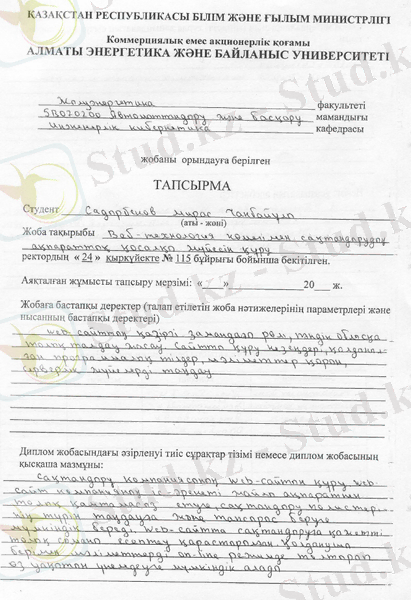 ҚАЗАҚСТАН РЕСПУБЛИКАСЫ БІЛІМ ЖӘНЕ ҒЫЛЫМ МИНИСТРЛІГІ
Коммерциялық емес акционерлік қоғамы
АЛМАТЫ ЭНЕРГЕТИКА ЖӘНЕ БАЙЛАНЫС УНИВЕРСИТЕТІ
Жылуэнергетика факультеті
5В070200 Автоматтандыру және басқару мамандығы
Инженерлік кибернетика кафедрасы
жобаны орындауға берілген
ТАПСЫРМА
Студент
(аты - жөні)
Жоба тақырыбы Веб-технология көмегімен сақтандырудың
ақпараттық қосалқы жүйесін құру
ректордың « 24 » қыркүйекте № 115 бұйрығы бойынша бекітілген.
Аяқталған жұмысты тапсыру мерзімі: «___»__________20___ ж.
Жобаға бастапқы деректер (талап етілетін жоба нәтижелерінің параметрлері және
нысанның бастапқы деректері)
web сайттың қазіргі замандағы рөлі, пәндік облысқа
толық талдау жасау Сайтты құру кезеңдері, қолданыл-
ған программалық тілдер, мәліметтер қорын,
серверлік жүйелерді таңдау
Диплом жобасындағы әзірленуі тиіс сұрақтар тізімі немесе диплом жобасының
қысқаша мазмұны:
Сақтандыру компаниясының web-сайтын құру. web
сайт компанияның іс-әрекеті жайлы ақпаратпен
толық қамтамасыз етуге, сақтандыру полистер-
нің түрін таңдауға және тапсырыс беруге
мүмкіндік береді. web-сайтта сақтандыруға қажетті
толық соманы есептеу қарастырылған. Қолданушы
берілген мәліметтерді on-line режимде толтырып
өз уақытын үнемдеуге мүмкіндік алады
Stud.kz - Stud.kz